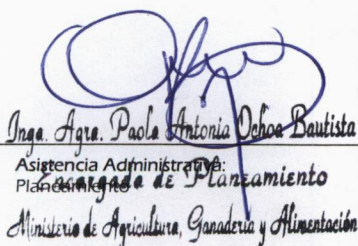 Inga. Agra. Paola Antonia Ochoa Bautista
Asistencia Administrativa:
Planeamiento
Encargada de Planeamiento
Ministerio de Agricultura, Ganadería y Alimentación